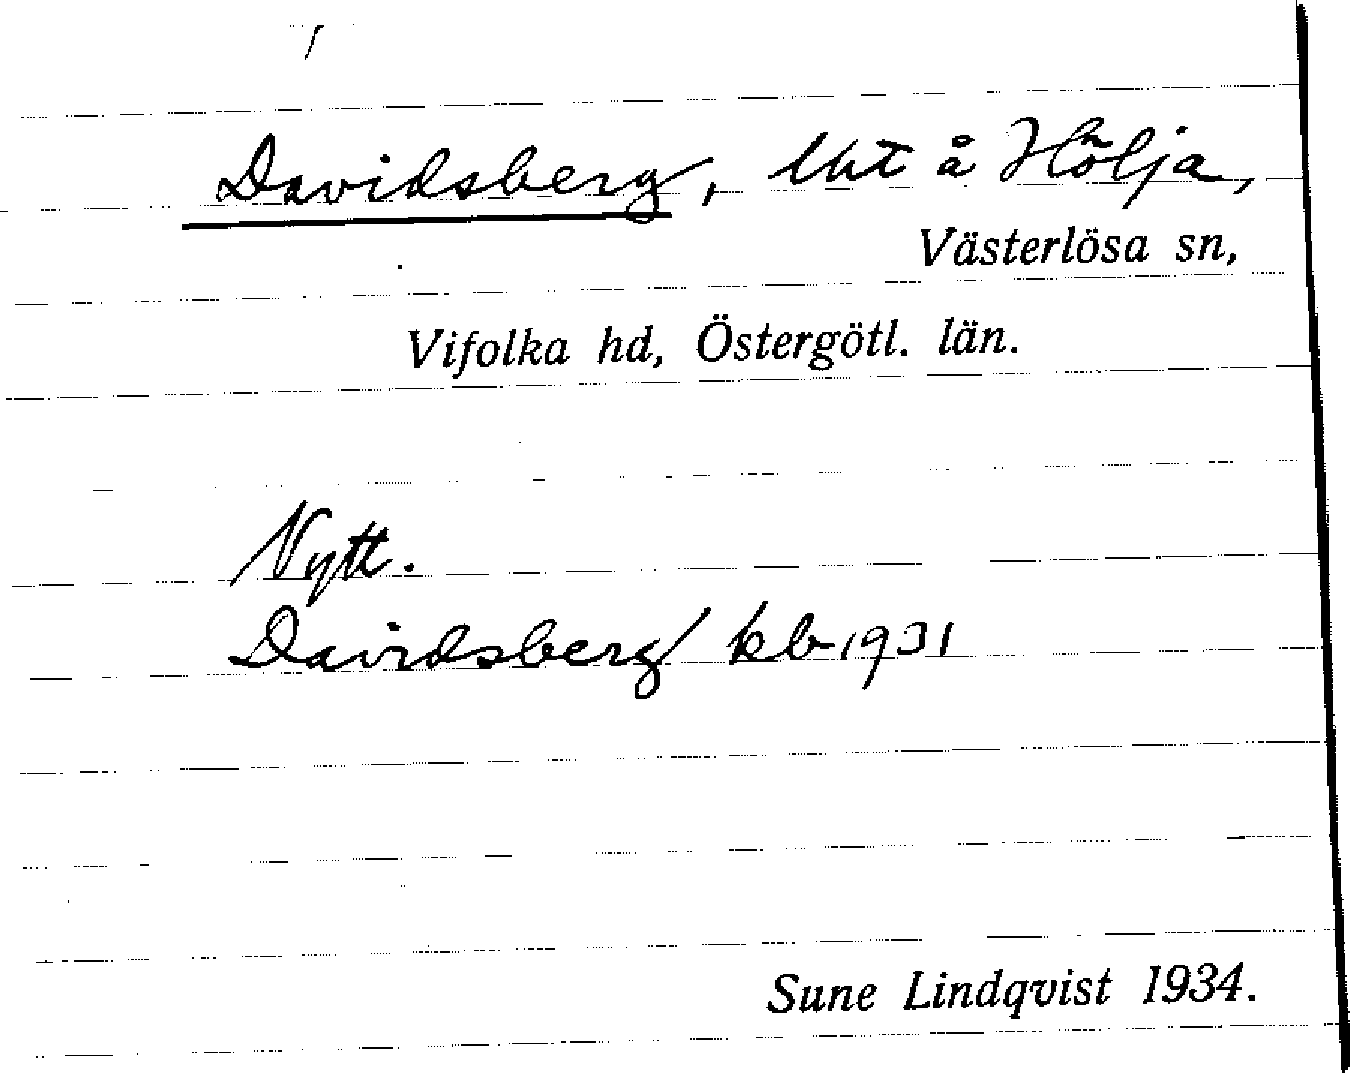 Davidsberg, lht å Hölja,
Västerlösa sn,
Vifolka hd, Östergötl. län.
Nytt.
Davidsberg kb 1931
Sune Lindqvist 1934.